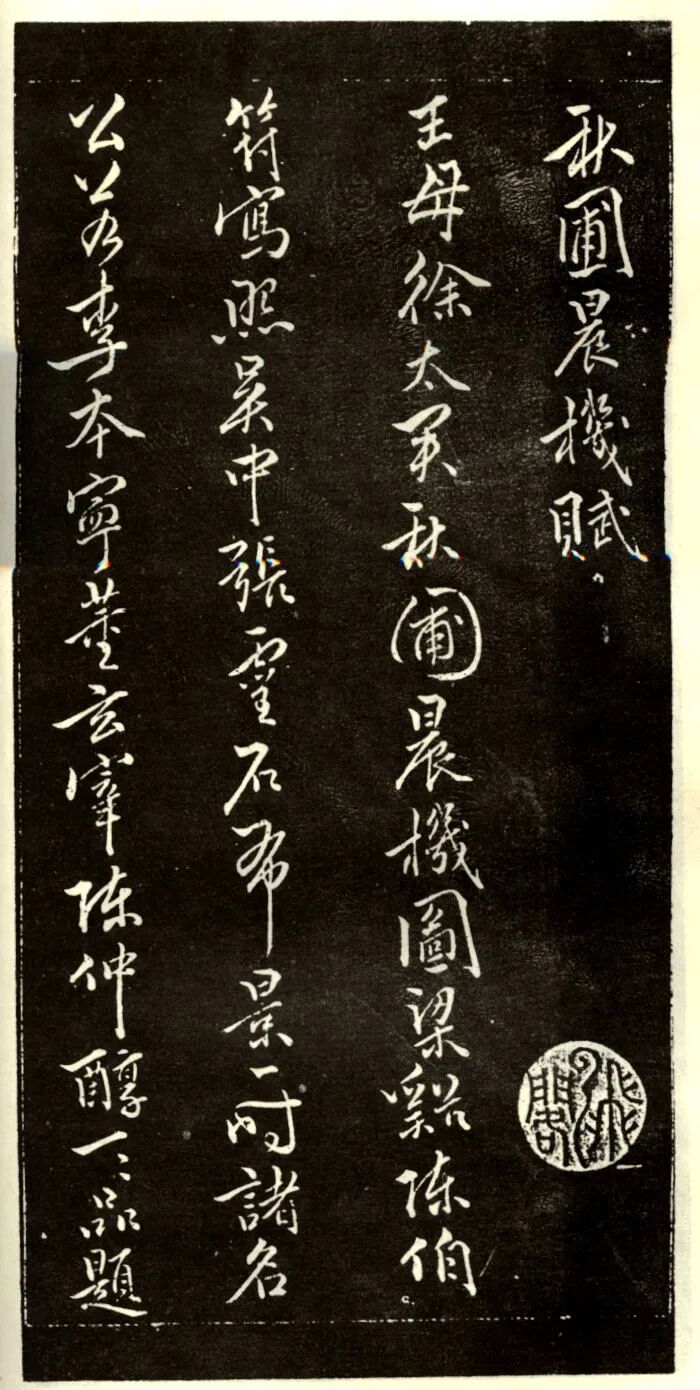 秋圃晨機賦
王母徐太君秋圃晨機圖梁谿陳伯
符寫照吳中張靈石布景一時諸名
公若李本寧董玄宰陳仲醇一一品題